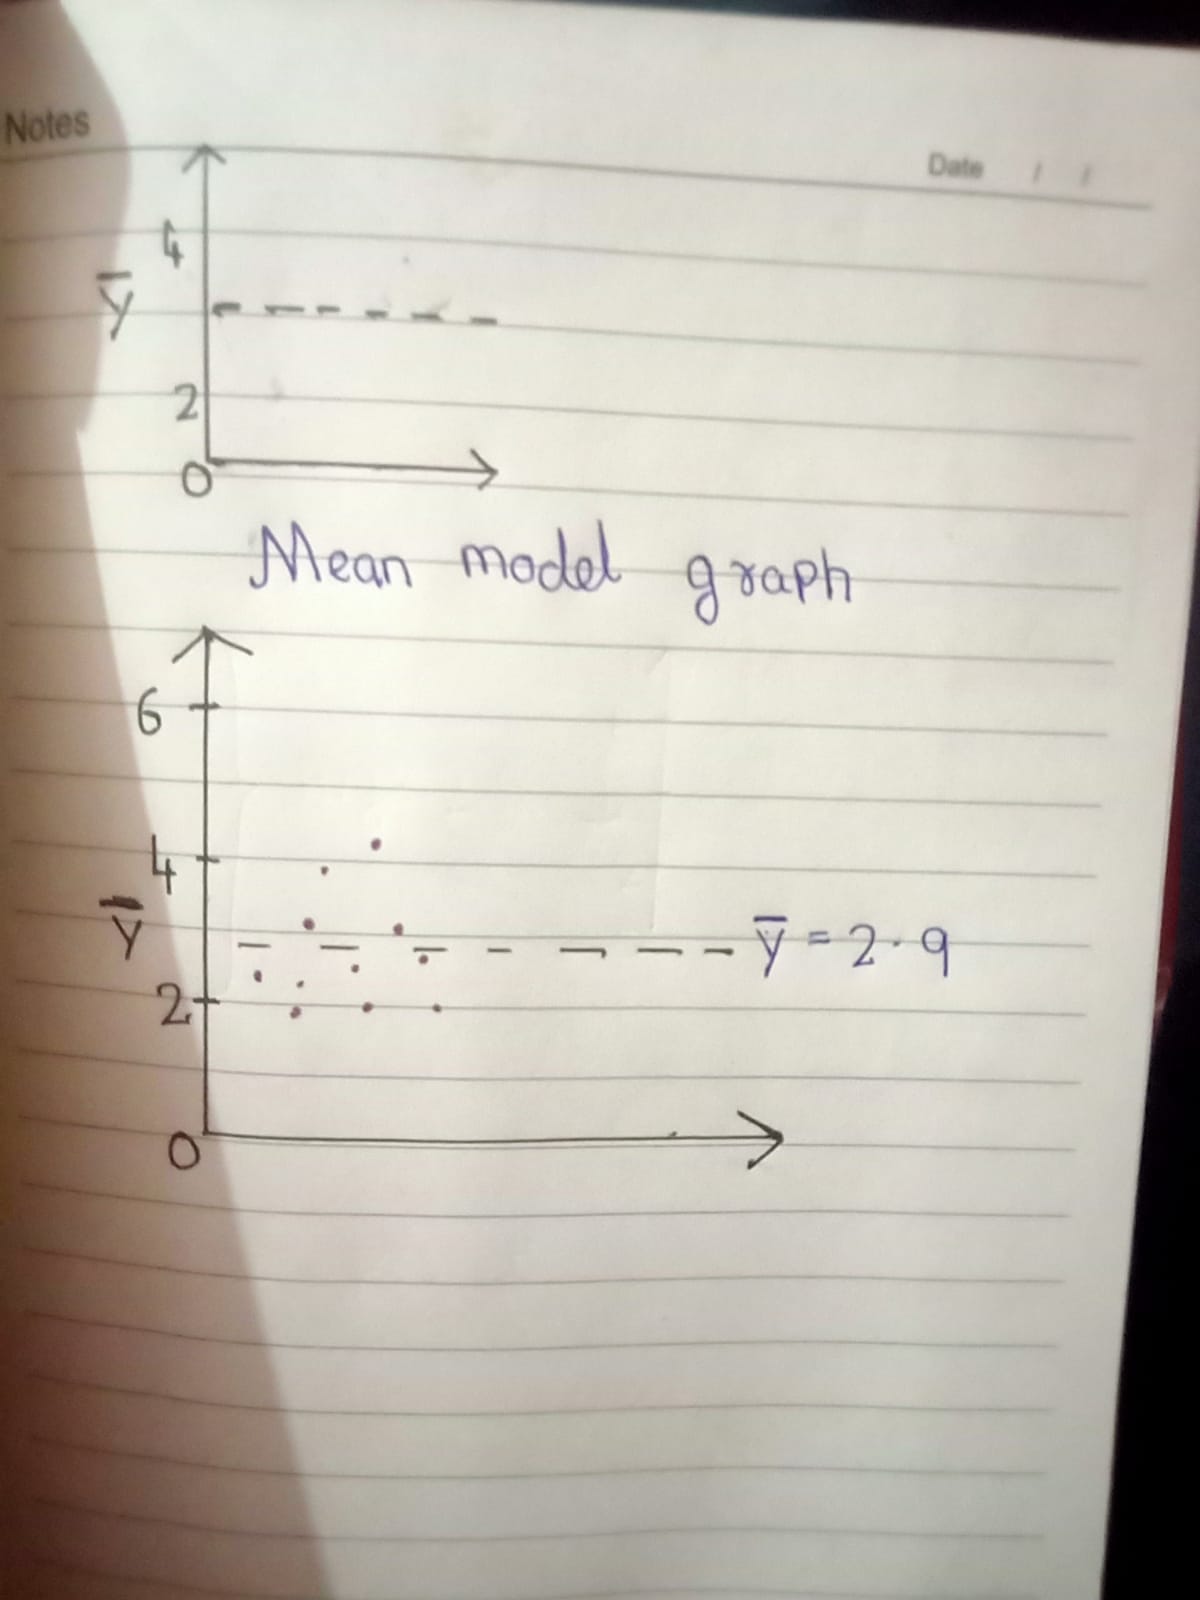 Notes
Date / /
4
ȳ
2
0
Mean model graph
6
4
ȳ
ȳ = 2.9
2
0